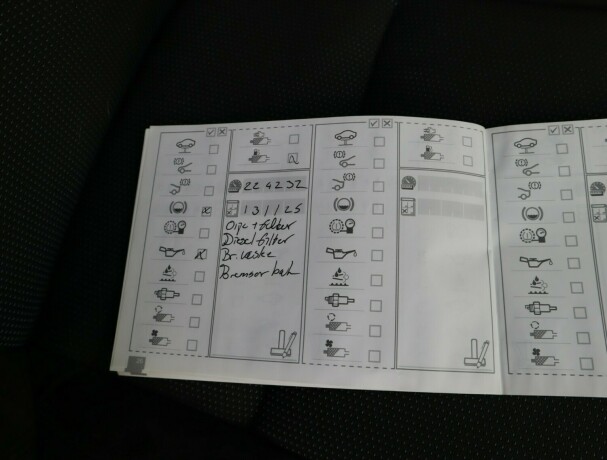 224232
13/1/25
Olje + filter
Diesel filter
Br. væske
Bremser bak